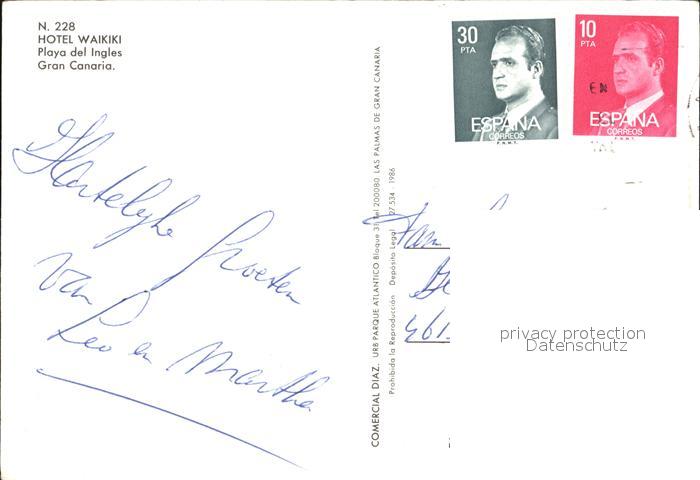 N. 228
HOTEL WAIKIKI
Playa del Ingles
Gran Canaria.
Hartelyke
Groeten
van
Leo en Martha
COMERCIAL DIAZ. URB PARQUE ATLANTICO Bloque 3 tel 200080 LAS PALMAS DE GRAN CANARIA
Prohibida la Reproducción Depósito Legal 534 - 1986
30
PTA
ESPAÑA
CORREOS
F.N.M.T.
10
PTA
ESPAÑA
CORREOS
F.N.M.T.
Fam
461
privacy protection
Datenschutz